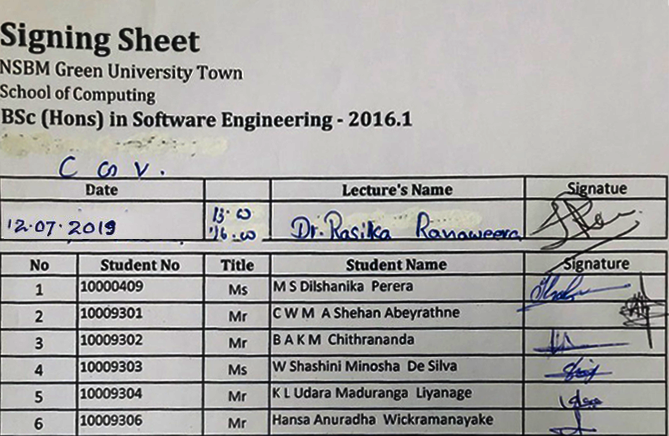 Signing Sheet
NSBM Green University Town
School of Computing
BSc (Hons) in Software Engineering - 2016.1
Date Lecture's Name Signatue
12.07.2019 13.00 16.00 Dr. Rasika Ranaweera
No Student No Title Student Name Signature
1 10000409 Ms M S Dilshanika Perera
2 10009301 Mr C W M A Shehan Abeyrathne
3 10009302 Mr B A K M Chithrananda
4 10009303 Ms W Shashini Minosha De Silva
5 10009304 Mr K L Udara Maduranga Liyanage
6 10009306 Mr Hansa Anuradha Wickramanayake